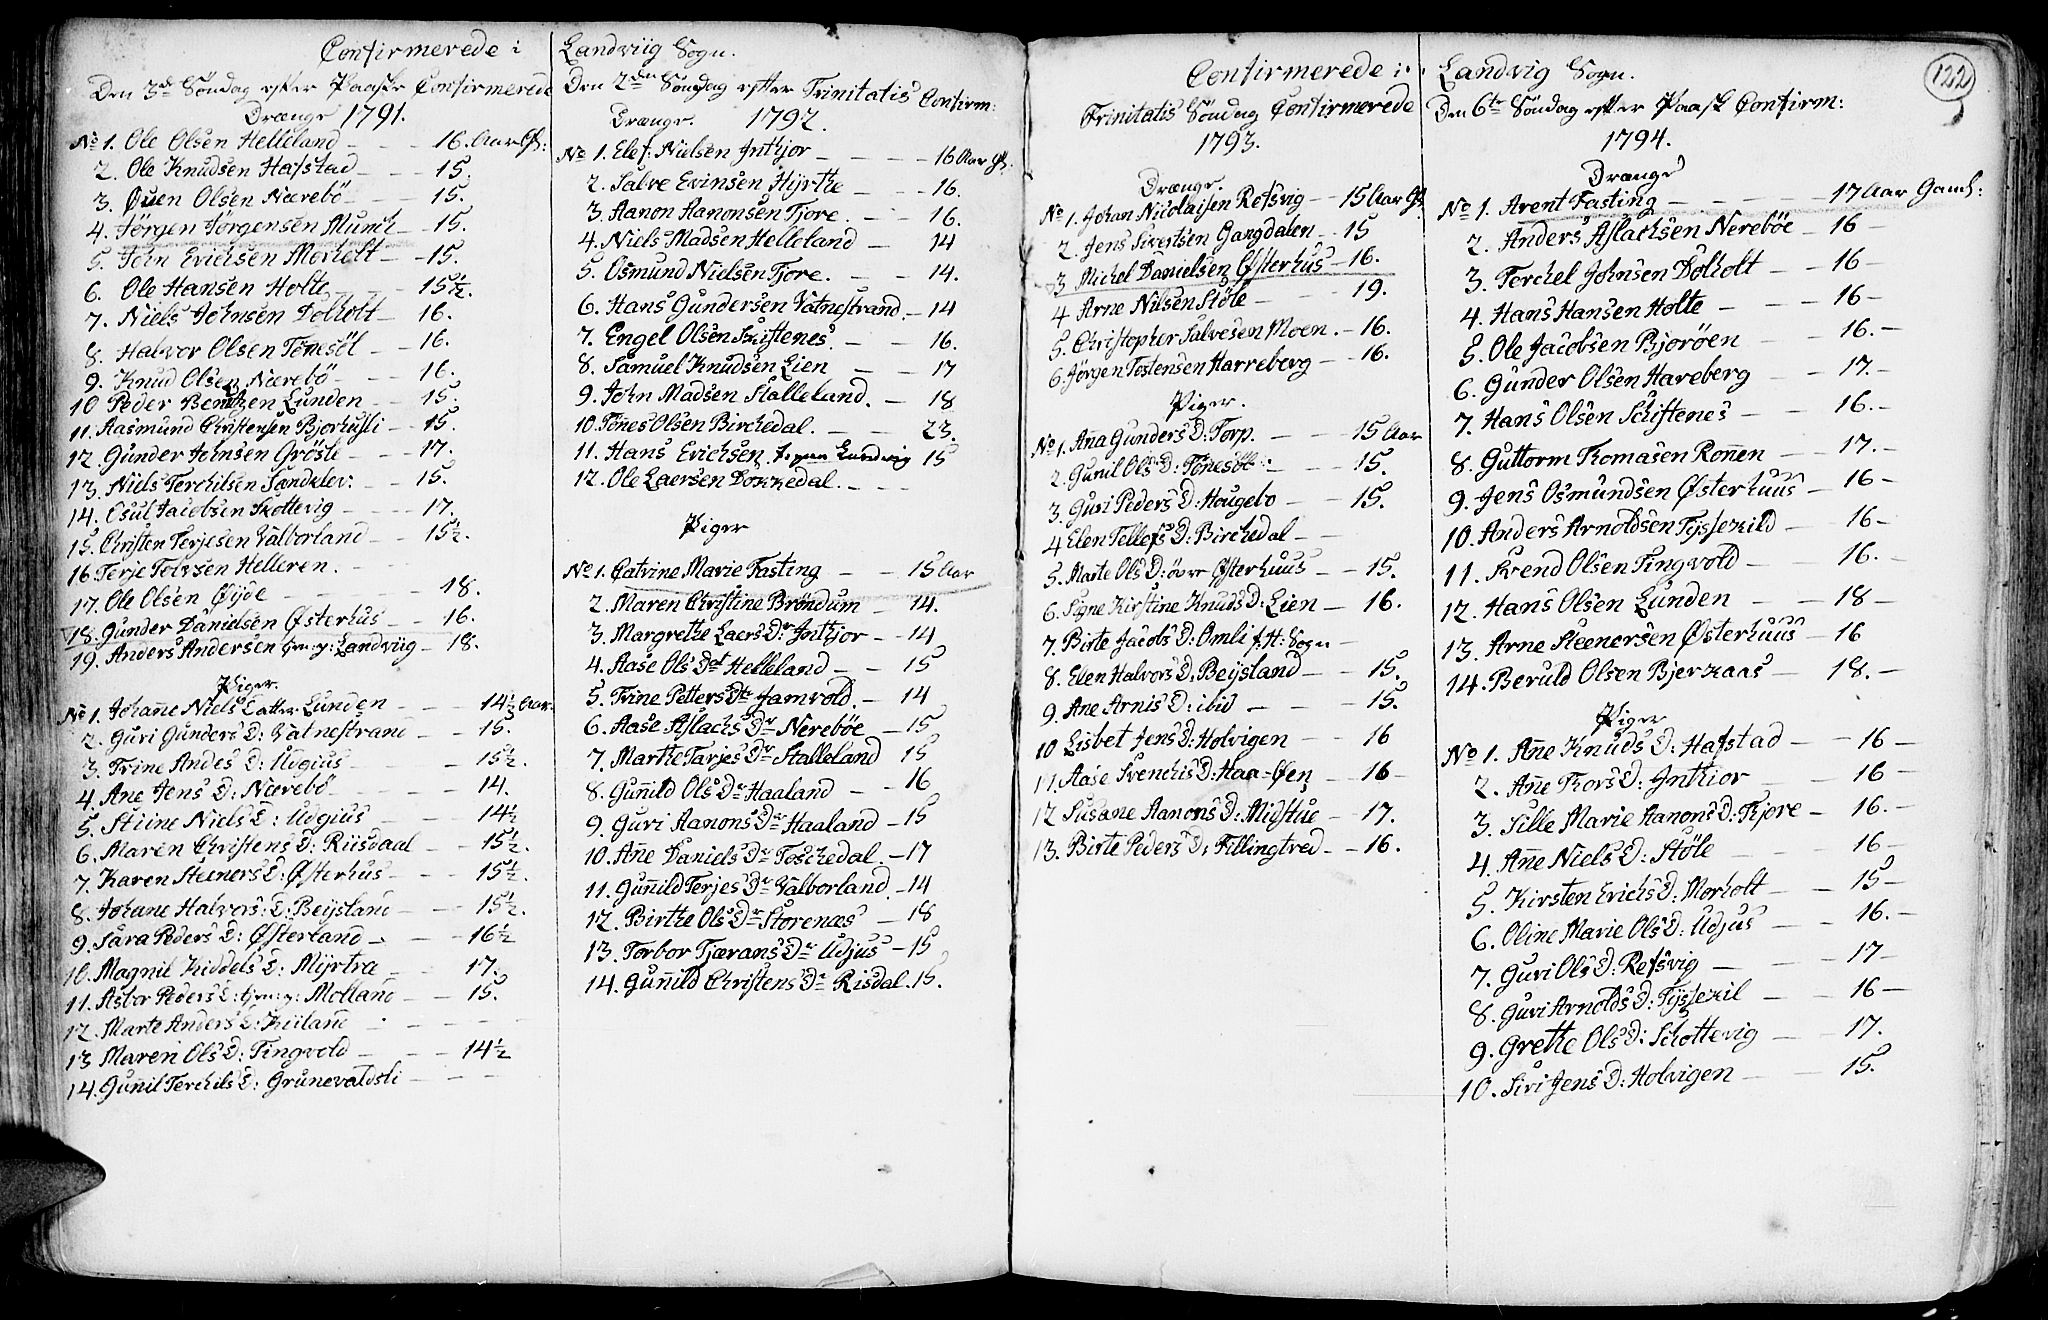 Confirmerede i Landviig Sogn.
Den 3de Söndag efter Paaske Confirmerede
Drænge 1791.
No 1. Ole Olsen Helleland - - - 16. Aar Gl:
2. Ole Knudsen Hafstad - - - 15.
3. Øuen Olsen Nærebö - - - 15.
4. Jörgen Jörgensen Munch - - 15.
5. John Erichsen Morholt - - 15.
6. Ole Hansen Holte - - - 15½.
7. Niels Johnsen Dolholt - 16.
8. Halvor Olsen Tönesöl - - 16.
9. Knud Olsen Nærebö - - - 16.
10 Peder Berntzen Lunden - - 15.
11. Aasmund Christensen Bjorhusli - 15.
12. Gunder Johnsen Gröste - - 17.
13. Niels Terchilsen Sandklev: - - 15.
14. Osul Jacobsen Skottevig - - - 17.
15. Christen Terjesen Valborland - - 15½.
16 Terje Tolvsen Helleren. - - -
17. Ole Olsen Öijde - - - 18.
18. Gunder Danielsen Østerhus - - 16.
19. Anders Andersen hjem: y: Landviig - 18.
Piger.
No 1. Johañe Niels Datter Lunden - - - 14½ Aar.
2. Guri Gunders D: Vatnestrand - - 15.
3. Trine Andes D: Udgius - - - 15½.
4. Ane Jens D: Nærebö - - - 14.
5. Stiine Niels D: Udgjus - - - 14½
6. Maren Christens D: Riisdaal - - 15½.
7. Karen Steeners D: Østerhus - - - 15½.
8. Johane Halvors: D: Beijsland - - 15½.
9. Sara Peders D: Østerland - - - 16½
10. Magnil Kiddels D: Mijrtra - - - 17.
11. Astor Peders D: hjem: y: Molland - - 15.
12. Marte Anders D: Kiiland - - -
13 Maren Ols D: Tingvold - - - 14½
14. Gunil Terchils D: Grunevaldsli - - -
Den 2den Söndag efter Trinitatis Confirm:
Drænge. 1792.
No 1. Elef: Nielsen Inthjor - - - - 16 Aar Gl.
2. Salve Evinsen Hijrthe - - - 16.
3. Aanon Aanonsen Tjore. - - - 16.
4. Niels Madsen Helleland - - 14
5. Osmund Nielsen Tjore. - - - 14.
6. Hans Gundersen Vatnestrand. - 14
7. Engel Olsen Skiftenes. - - - 16.
8. Samuel Knudsen Lien - - 17
9. John Madsen Stalleland. - - 18
10. Tönes Olsen Birchedal. - - - 23.
11. Hans Erichsen Landvig 15
12. Ole Laersen Dokkedal. - - -
Piger
No 1. Catrine Marie Fasting - - 15 Aar
2. Maren Christine Bröndum - 14.
3. Margrethe Laers Dr Inthjor - - 14
4. Aase Ols Dat Helleland - - 15
5. Trine Petters Dtr Jamvold. - 14
6. Aase Aslachs Dr Nerebøe - 15
7. Marthe Tarjes Dr Stalleland 15
8. Guñild Ols Dr Haaland - - 16
9. Guri Aanons Dr Haaland - 15
10. Añe Daniels Dr Toschedal. - 17
11. Guñild Terjes Dr Valborland. - 14
12. Birthe Ols Dr Storenæs - 18
13. Torbor Tjærans Dr Udjus - 15
14. Guñild Christens Dr Risdal. 15.
122
Confirmerede i Landvig Sogn.
Trinitatis Söndag Confirmerede
1793.
Drænge.
No 1. Johan Nicolaisen Refsvig - 15 Aar Gl.
2. Jens Sivertsen Gangdalen - 15
3 Michel Danielsen Østerhus - 16.
4 Arne Nilsen Støle - - - 19.
5. Christopher Salvesen Moen. - 16.
6. Jörgen Tostensen Harreberg - - 16.
Piger.
No 1. Aña Gunders D: Torp. - - - 15 Aar
2. Gunil Ols D: Tönesöl - - - 15.
3. Guri Peders D: Hougebo - - 15.
4 Elen Tellefs D: Birchedal - -
5. Marte Ols D: övre Østerhuus - - 15.
6. Signe Kirstine Knuds D: Lien - 16.
7. Birte Jacobs D: Omli f. H: Sogn -
8. Elen Halvors D: Beijsland - - 15.
9. Ane Arnis D: ibid - - - 15.
10 Lisbet Jens D: Holvigen - - 16
11. Aase Svenchis D: Haa-Øen - - 16 -
12 Susane Aanons D: Midstue - - 17.
13. Birte Peders D: Fillingtred - - 16.
Den 6te Söndag efter Paask Confirm:
1794.
Drænge
No 1. Arent Fasting - - - - 17 Aar Gaml:
2. Anders Aslachsen Nerebøe - 16 -
3. Terchel Johnsen Dolholt - - 16 -
4. Hans Hansen Holte - - - 16 -
5. Ole Jacobsen Bjorøen - - 16. -
6. Gunder Olsen Hareberg - - 17. -
7. Hans Olsen Schiftenes - - 16. -
8. Guttorm Thomasen Roñen - - 17. -
9. Jens Osmundsen Østerhuus - 16 -
10. Anders Arnoldsen Tijstekild - - 16 -
11. Svend Olsen Tingvold - - 16. -
12. Hans Olsen Lunden - - 18 -
13. Arne Steenersen Østerhuus - 16
14. Beruld Olsen Bjerkaas - - 18. -
Piger
No 1. Añe Knuds D: Hafstad - - 16 -
2. Añe Thors D: Inthior - - 16 -
3. Sille Marie Aanons D: Thjore - 16. -
4. Añe Niels D: Støle - - - 16 -
5. Kirsten Erichs D: Morholt - - 15 -
6. Oline Marie Ols D: Udjus - - 16. -
7. Guri Ols D: Refsvig - - - 17 -
8. Guri Arnolds D: Tijstekil - - 16 -
9. Grethe Ols D: Schottevig - - 17.
10. Siri Jens D: Holvigen - - - 15.